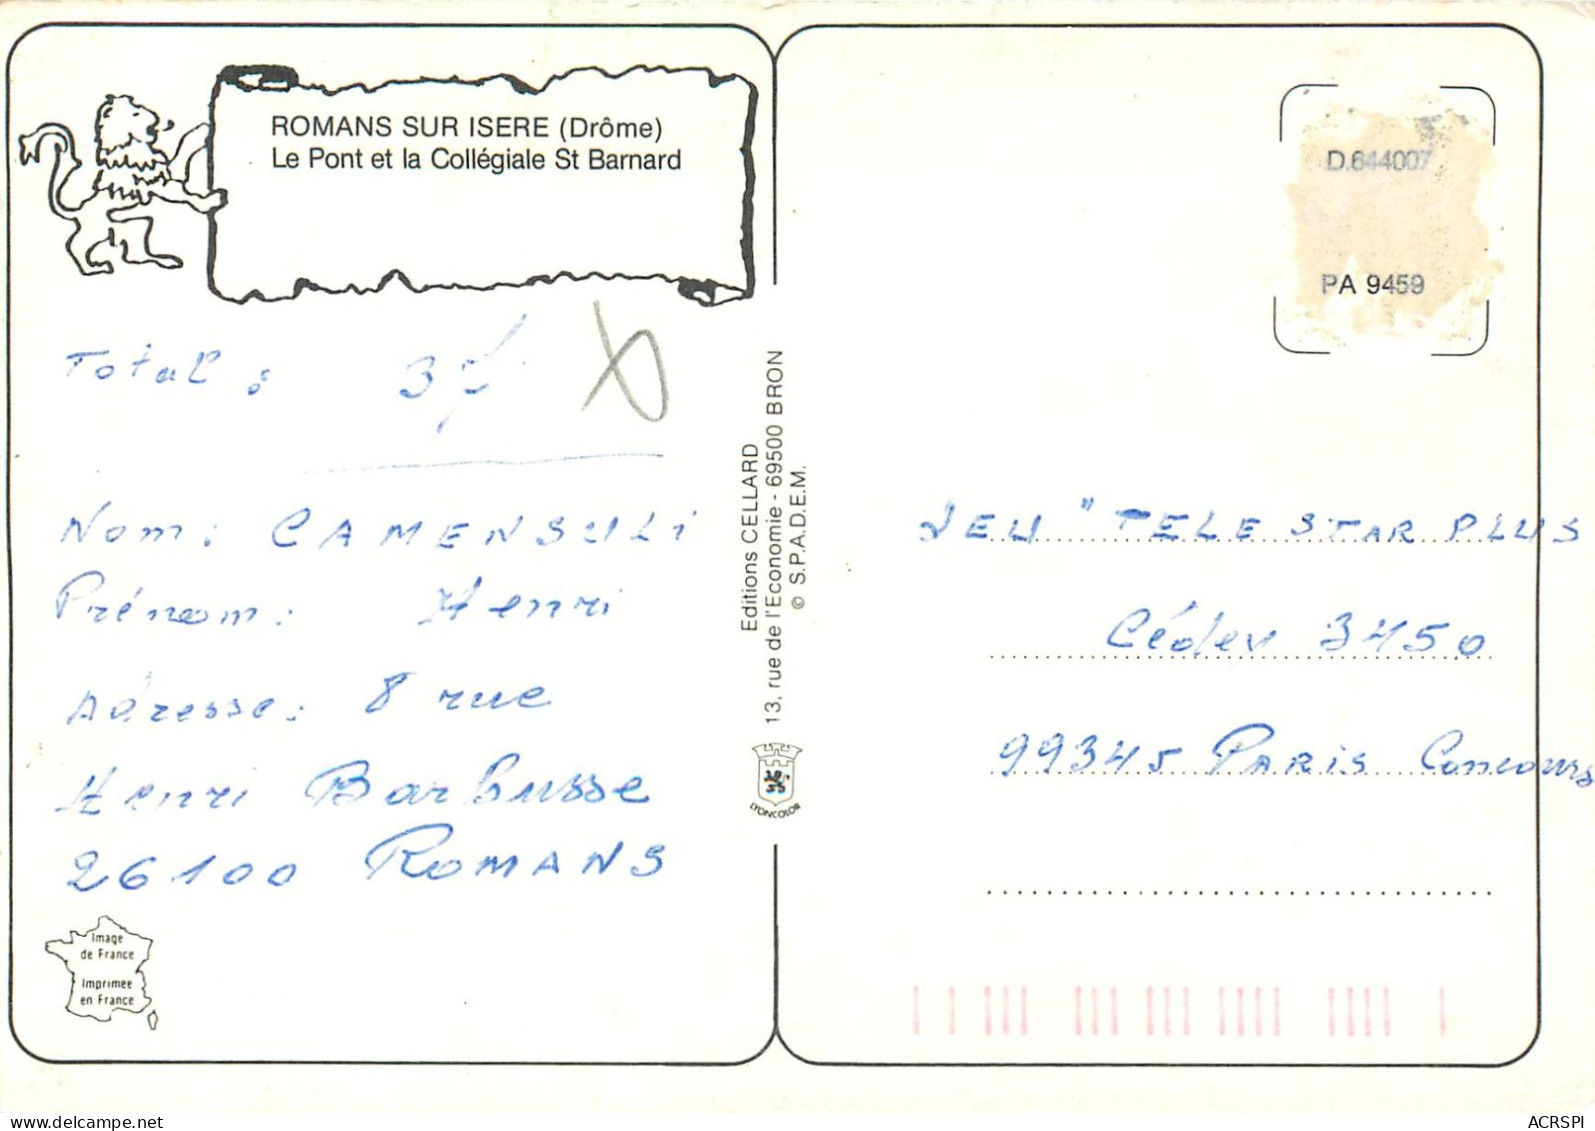 ROMANS SUR ISERE (Drôme)
Le Pont et la Collégiale St Barnard
Total : 37
Nom : CAMENSULI
Prénom : Henri
Adresse : 8 rue
Henri Barbusse
26100 ROMANS
Image
de France
Imprimee
en France
Editions CELLARD
13, rue de l'Economie - 69500 BRON
© S.P.A.D.E.M.
LYONCOLOR
D.644007
PA 9459
JEU "TELE STAR PLUS
Cédex 3450
99345 PARIS Concours
ACRSPI